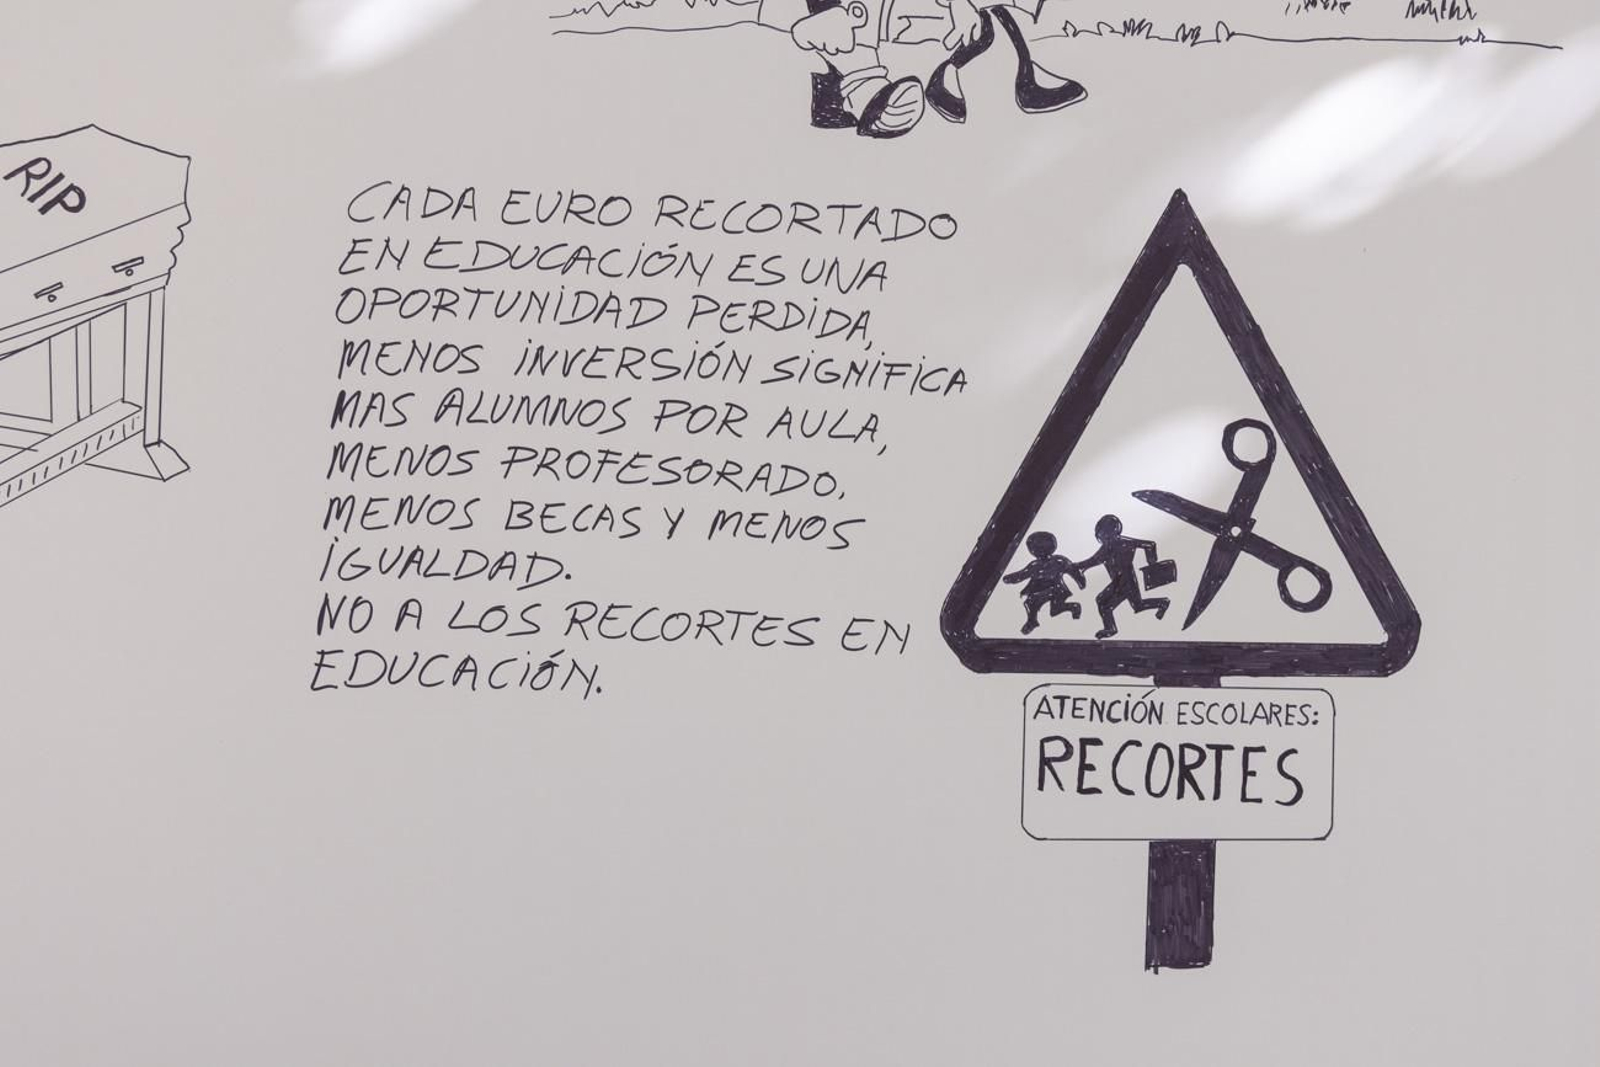 RIP
CADA EURO RECORTADO
EN EDUCACIÓN ES UNA
OPORTUNIDAD PERDIDA,
MENOS INVERSIÓN SIGNIFICA
MAS ALUMNOS POR AULA,
MENOS PROFESORADO,
MENOS BECAS Y MENOS
IGUALDAD.
NO A LOS RECORTES EN
EDUCACIÓN.
ATENCIÓN ESCOLARES:
RECORTES